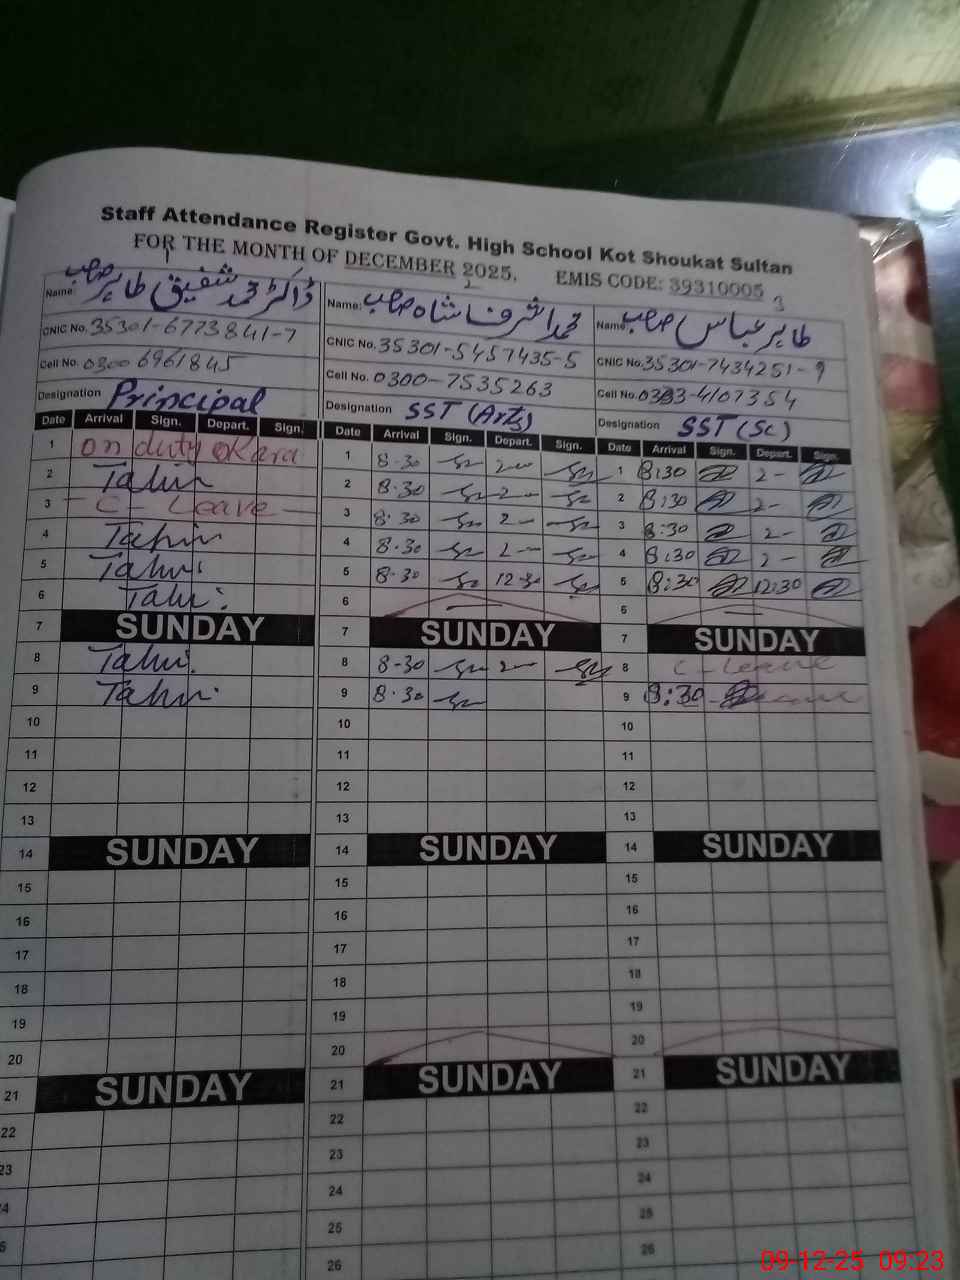 Staff Attendance Register Govt. High School Kot Shoukat Sultan
FOR THE MONTH OF DECEMBER 2025. EMIS CODE: 39310005
1 2 3
Name: ڈاکٹر محمد شفیق طاہر صاحب
CNIC No. 35301-6773841-7
Cell No. 0300 6961845
Designation Principal
Date Arrival Sign. Depart. Sign.
1 on duty okara
2 Tahir
3 C - Leave
4 Tahir
5 Tahir
6 Tahir
7 SUNDAY
8 Tahir
9 Tahir
10
11
12
13
14 SUNDAY
15
16
17
18
19
20
21 SUNDAY
22
23
Name: محمد اشرف شاہ صاحب
CNIC No. 35301-5457435-5
Cell No. 0300-7535263
Designation SST (Arts)
Date Arrival Sign. Depart. Sign.
1 8-30 2-00
2 8-30 2-
3 8-30 2-
4 8-30 2-
5 8-30 12-30
6
7 SUNDAY
8 8-30 2-
9 8-30
10
11
12
13
14 SUNDAY
15
16
17
18
19
20
21 SUNDAY
22
23
24
25
26
Name: طاہر عباس صاحب
CNIC No. 35301-7434251-9
Cell No. 0333-4107354
Designation SST (Sc)
Date Arrival Sign. Depart. Sign.
1 8:30 2-
2 8:30 2-
3 8:30 2-
4 8:30 2-
5 8:30 12:30
6
7 SUNDAY
8 C - Leave
9 8:30
10
11
12
13
14 SUNDAY
15
16
17
18
19
20
21 SUNDAY
22
23
24
25
26
09-12-25 09:23